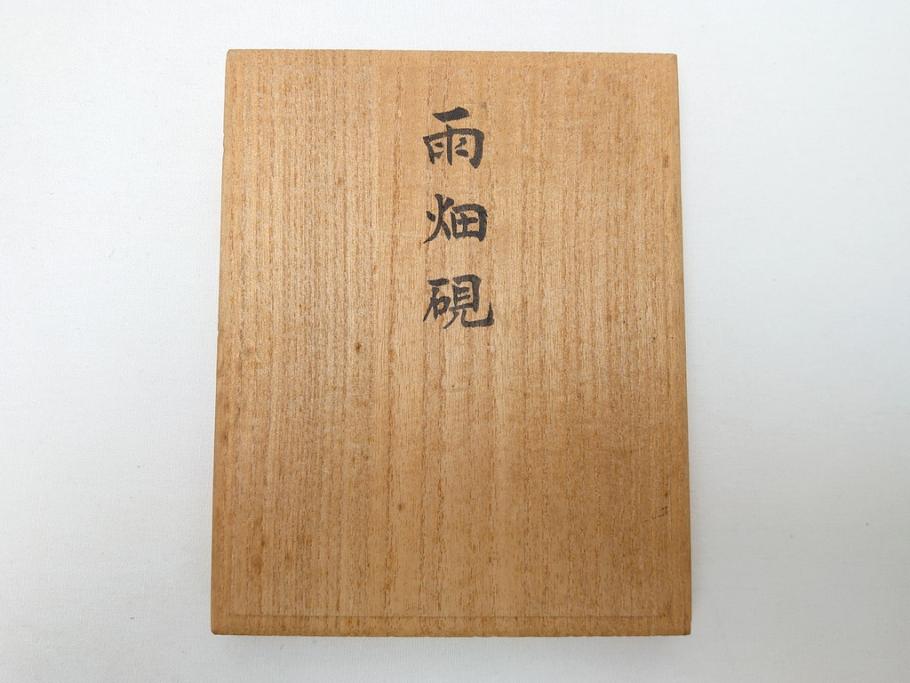 雨畑硯